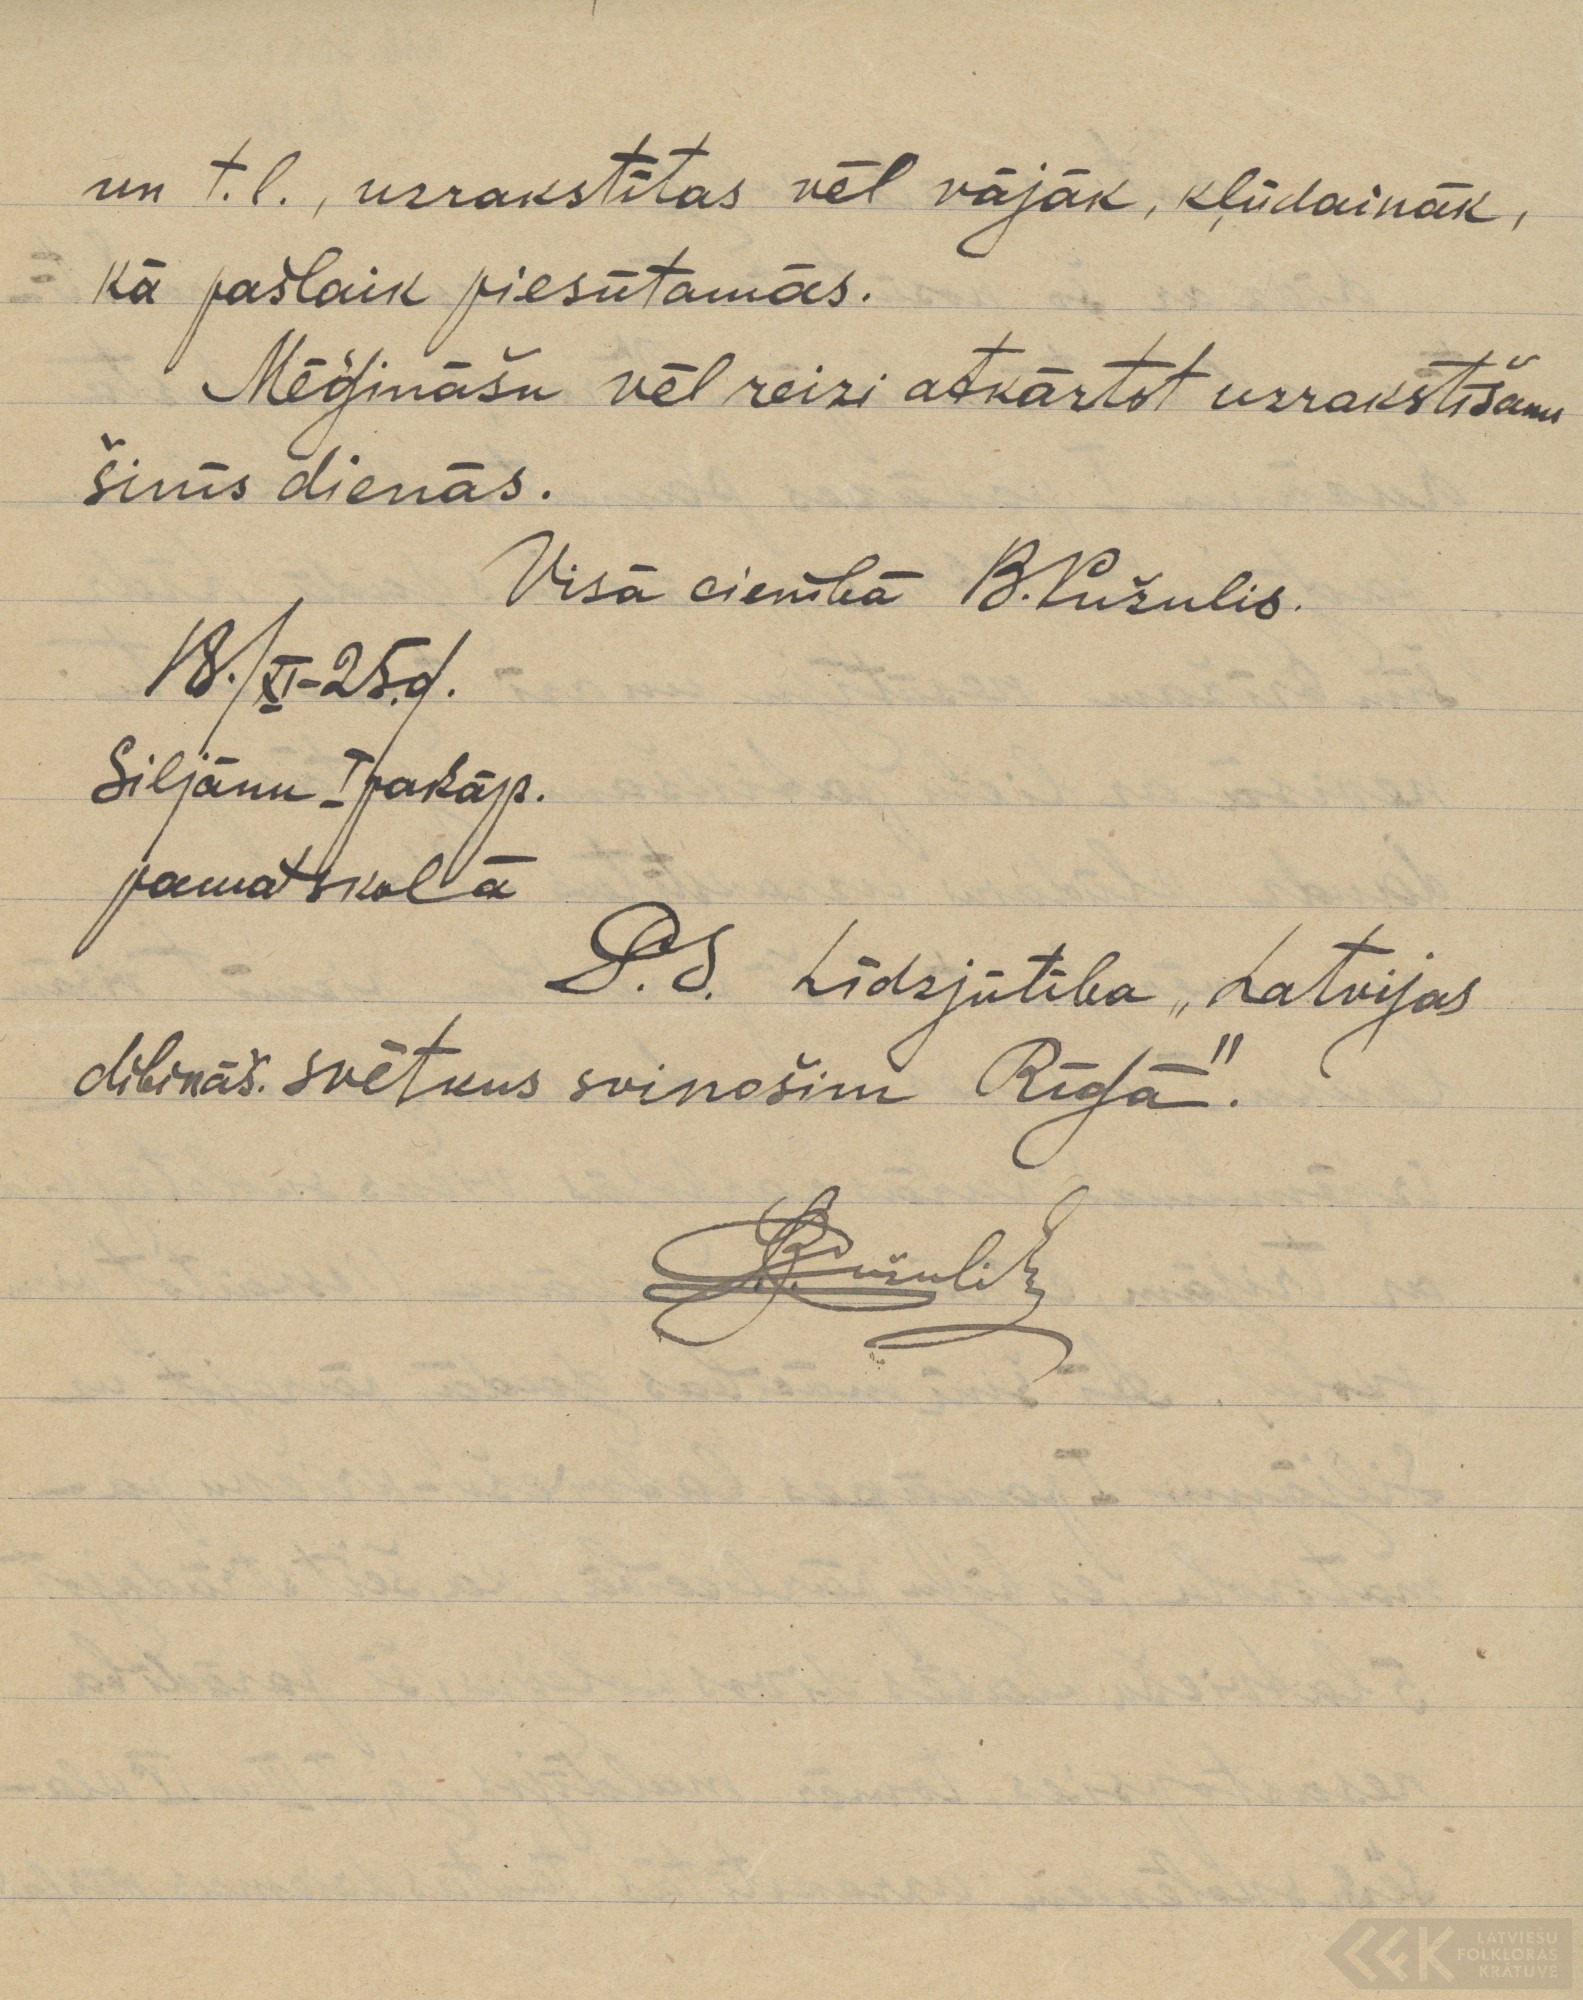 un t.l., uzrakstītas vēl vājāk, kļūdaināk,
kā pašlaik piesūtamās.
Mēģināšu vēl reizi atkārtot uzrakstīšanu
šinīs dienās.
Visā cienībā B. Pužulis.
18./XI-25.g.
Siljānu I pakāp.
pamatskolā
P.S. Līdzjūtība „Latvijas
dibināš. svētkus svinošim Rīgā".
B. Pužulis
LATVIEŠU
FOLKLORAS
KRĀTUVE